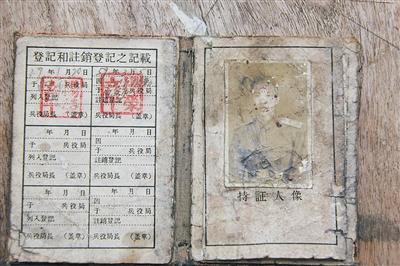 登記和註銷登記之記載
年 月 日
于 兵役局
列入登記
兵役局長 (盖章)
年 月 日
因
註銷登記
兵役局長 (盖章)
年 月 日
于 兵役局
列入登記
兵役局長 (盖章)
年 月 日
因
註銷登記
兵役局長 (盖章)
年 月 日
于 兵役局
列入登記
兵役局長 (盖章)
年 月 日
因
註銷登記
兵役局長 (盖章)
持証人像